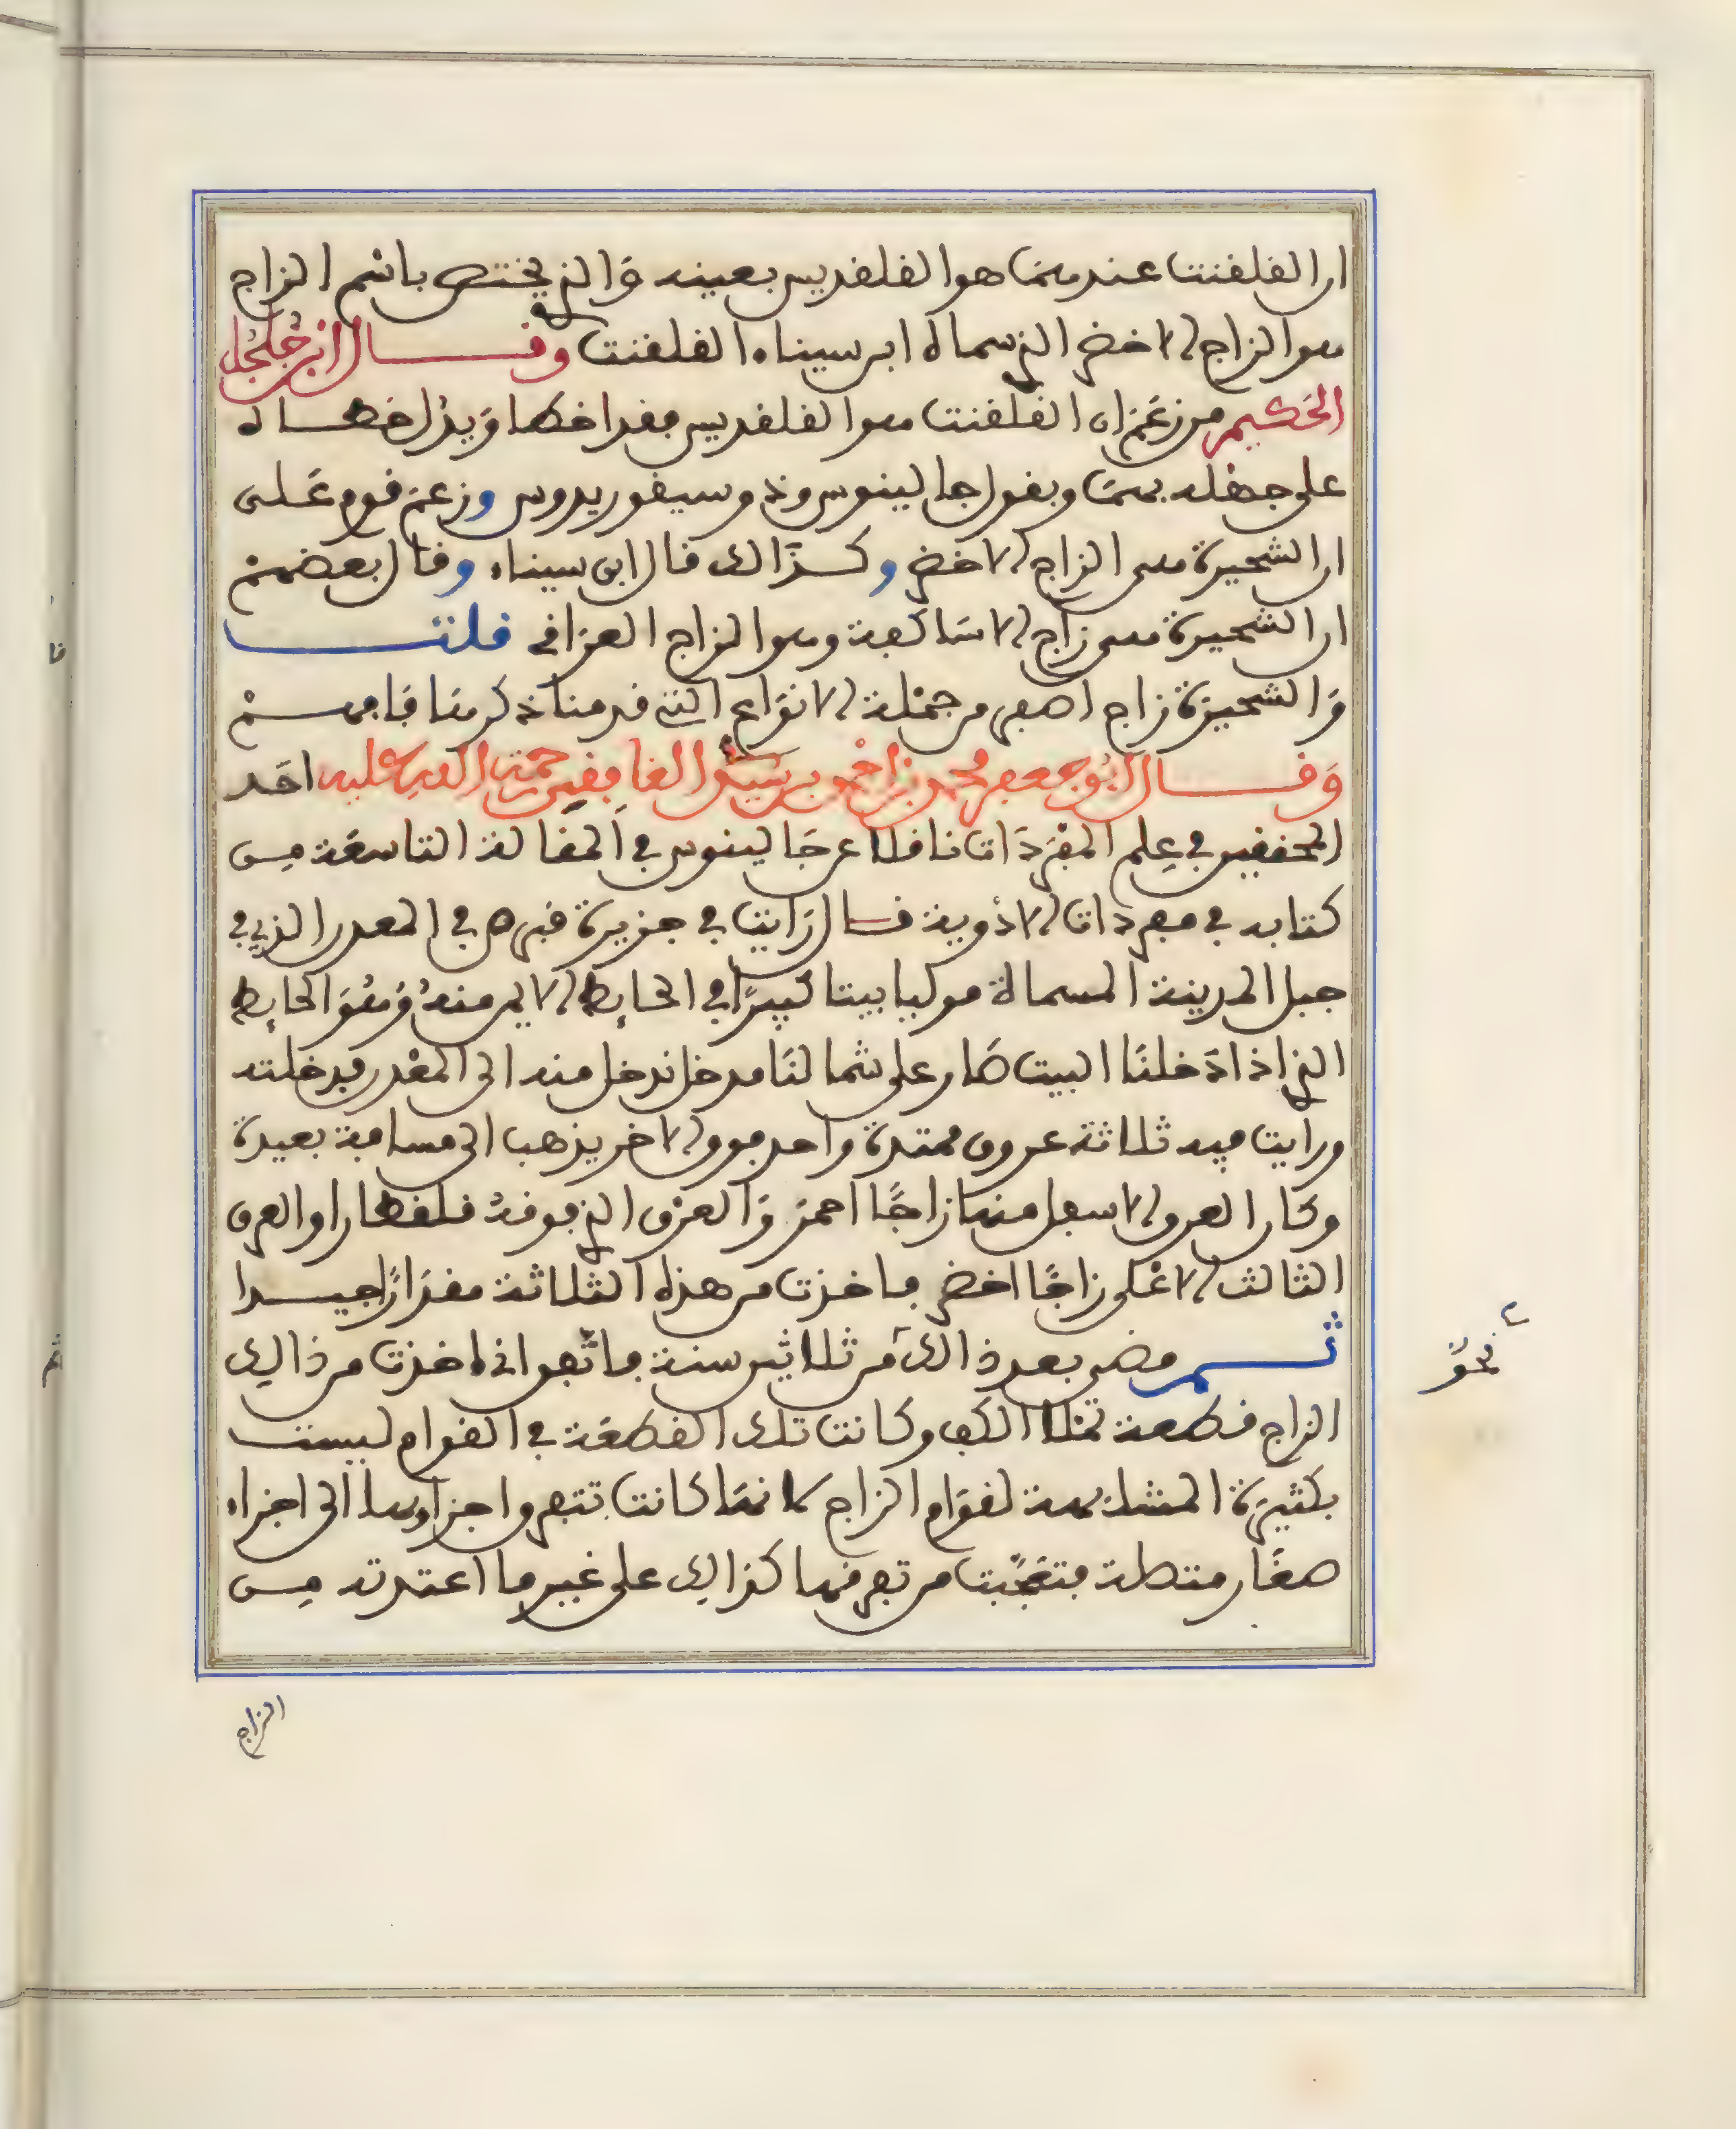 ان القلقنت عندهما هو القلقديس بعينه والذي يختص باسم الزاج
هو الزاج الاخضر الذي سماه ابن سيناء القلقنت وقال ابن جلجل
الحكيم من زعم ان القلقنت هو القلقديس فقد اخطا ويدل خطاه
على جهله بهما وبقول جالينوس وذوسيفوريدوس وزعم قوم على
ان الشحيرة هي الزاج الاخضر وكذالك قال ابن سيناء وقال بعضهم
ان الشحيرة هي زاج الاساكفة وهو الزاج العراقي قلت
والشحيرة زاج اصفر من جملة الانواع التي قدمنا ذكرها فافهم
وقال ابو جعفر محمد بن احمد بن سيد الغافقي رحمت الله عليه احد
المحققين في علم المفردات ناقلا عن جالينوس في المقالة التاسعة من
كتابه في مفردات الادوية قال رايت في جزيرة قبرص في المعدن الذي في
جبل المدينة المسماة موليا بيتا كبيرا في الحايط الايمن منه وهو الحايط
الذي اذا دخلنا البيت صار على شمالنا مدخل ندخل منه الى المعدن فدخلته
ورايت فيه ثلاثة عروق ممتدة واحد فوق الاخر يذهب الى مسافة بعيدة
وكان العرق الاسفل منها زاجا احمر والعرق الذي فوقه قلقطارا والعرق
الثالث الاعلى زاجا اخضر فاخذت من هذه الثلاثة مقدارا جيدا
ثم مضى بعد ذالك من ثلاثين سنة فاتفق اني اخذت من ذالك
الزاج قطعة تملا الكف وكانت تلك القطعة في القوام ليست
بكثيرة المشابهة لقوام الزاج لانها كانت تتفرق اجزاوها الى اجزاء
صغار متصلة فتعجبت من تفرقها كذالك على غير ما اعتدته من
نحو
الزاج